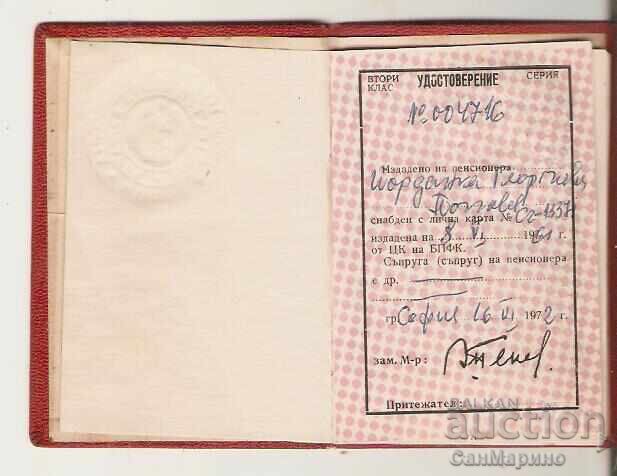 ВТОРИ УДОСТОВЕРЕНИЕ СЕРИЯ
КЛАС
№ 004716
Издадено на пенсионера
Йорданка Георгиева
снабден с лична карта № 
издадена на 8 VI 1961 г.
от ЦК на БПФК.
Съпруга (съпруг) на пенсионера
с др.
гр. София 16 VI 1972 г.
зам. М-р:
Притежател:
BALKAN
auction
СанМарино